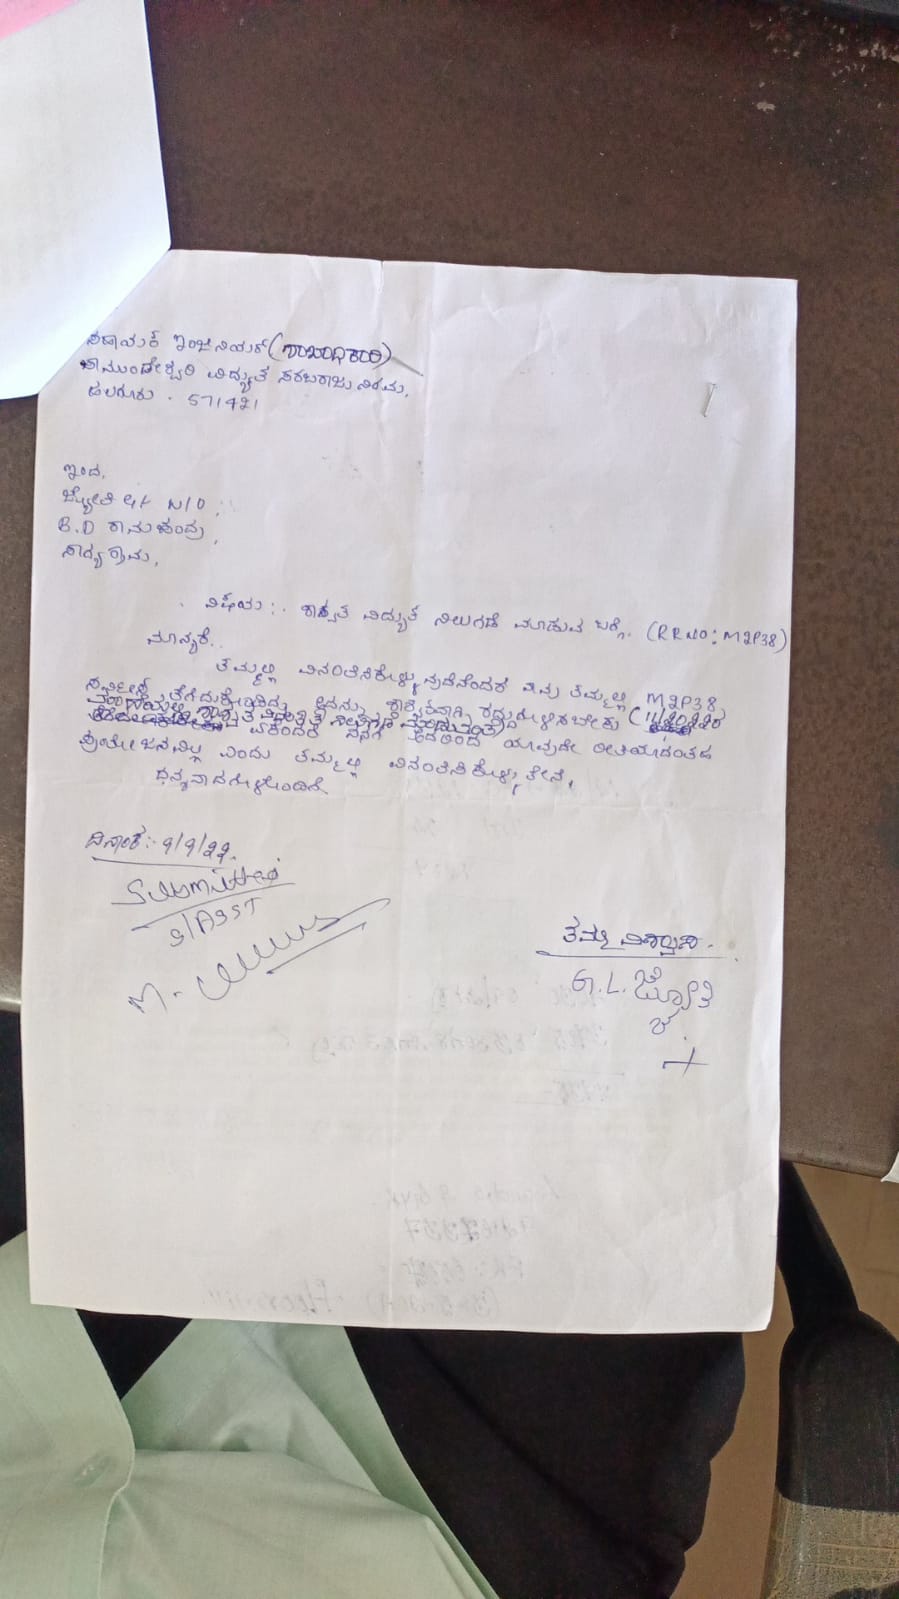 ಸಹಾಯಕ ಇಂಜಿನಿಯರ್ (ಶಾಖಾಧಿಕಾರಿ)
ಚಾಮುಂಡೇಶ್ವರಿ ವಿದ್ಯುತ ಸರಬರಾಜು ನಿಗಮ,
ಹಲಗೂರು . 571421
ಇಂದ,
ಜ್ಯೋತಿ W/O,
B.D ರಾಮಚಂದ್ರ,
ಗ್ರಾಮ,
ವಿಷಯ:. ಶಾಶ್ವತ ವಿದ್ಯುತ ನಿಲುಗಡೆ ಮಾಡುವ ಬಗ್ಗೆ. (RRNO: M2P38)
ಮಾನ್ಯರೆ..
ತಮ್ಮಲ್ಲಿ ವಿನಂತಿಸಿಕೊಳ್ಳುವುದೆನೆಂದರೆ ತಮ್ಮಲ್ಲಿ M2P38
ತೆಗೆದುಕೊಂಡಿದ್ದು ಅದನ್ನು ಶಾಶ್ವತವಾಗಿ ರದ್ದುಗೊಳಿಸಬೇಕು
ಏಕೆಂದರೆ ನನಗೆ ಇದರಿಂದ ಯಾವುದೇ ರೀತಿಯಾದಂತಹ
ಪ್ರಯೋಜನವಿಲ್ಲ ಎಂದು ತಮ್ಮಲ್ಲಿ ವಿನಂತಿಸಿಕೊಳ್ಳುತ್ತೇನೆ,
ಧನ್ಯವಾದಗಳೊಂದಿಗೆ.
ದಿನಾಂಕ:- 9/9/22.
Submitted
S/ASST
M.
ತಮ್ಮ ವಿಶ್ವಾಸಿ.
G.L. ಜ್ಯೋತಿ